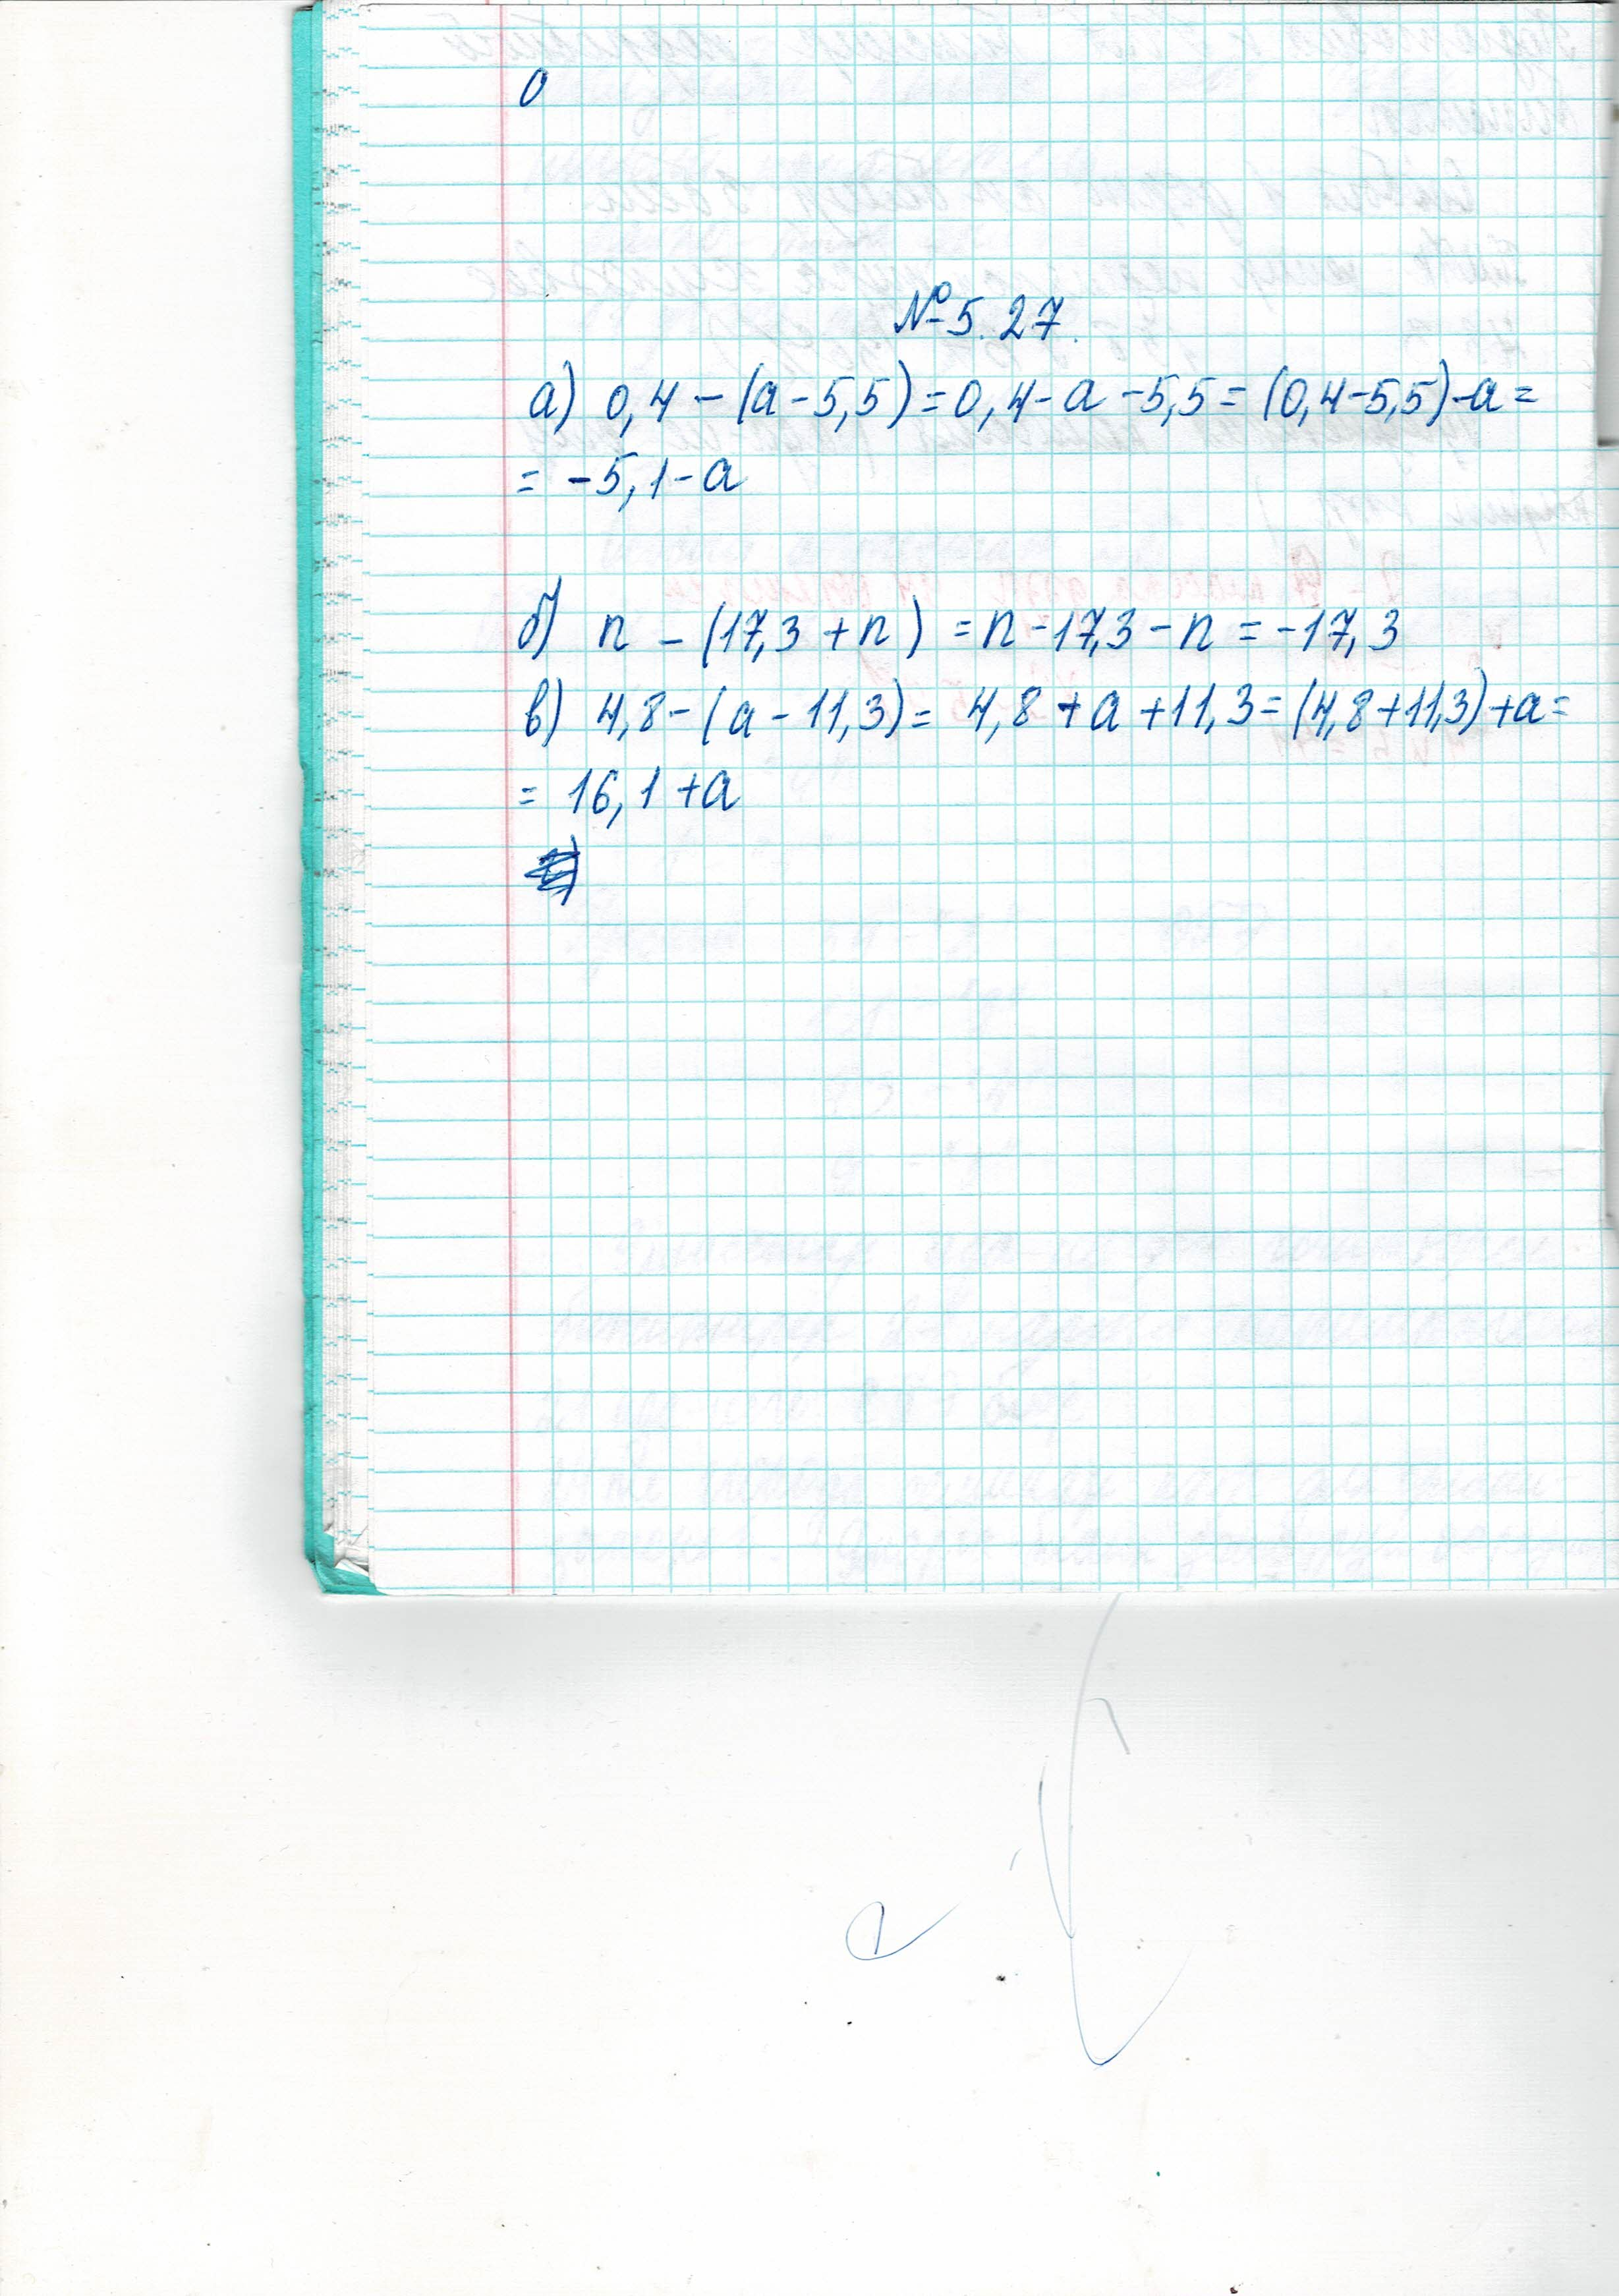 0
№ 5.27.
а) 0,4 - (a - 5,5) = 0,4 - a - 5,5 = (0,4 - 5,5) - a =
= -5,1 - a
б) n - (17,3 + n) = n - 17,3 - n = -17,3
в) 4,8 - (a - 11,3) = 4,8 + a + 11,3 = (4,8 + 11,3) + a =
= 16,1 + a